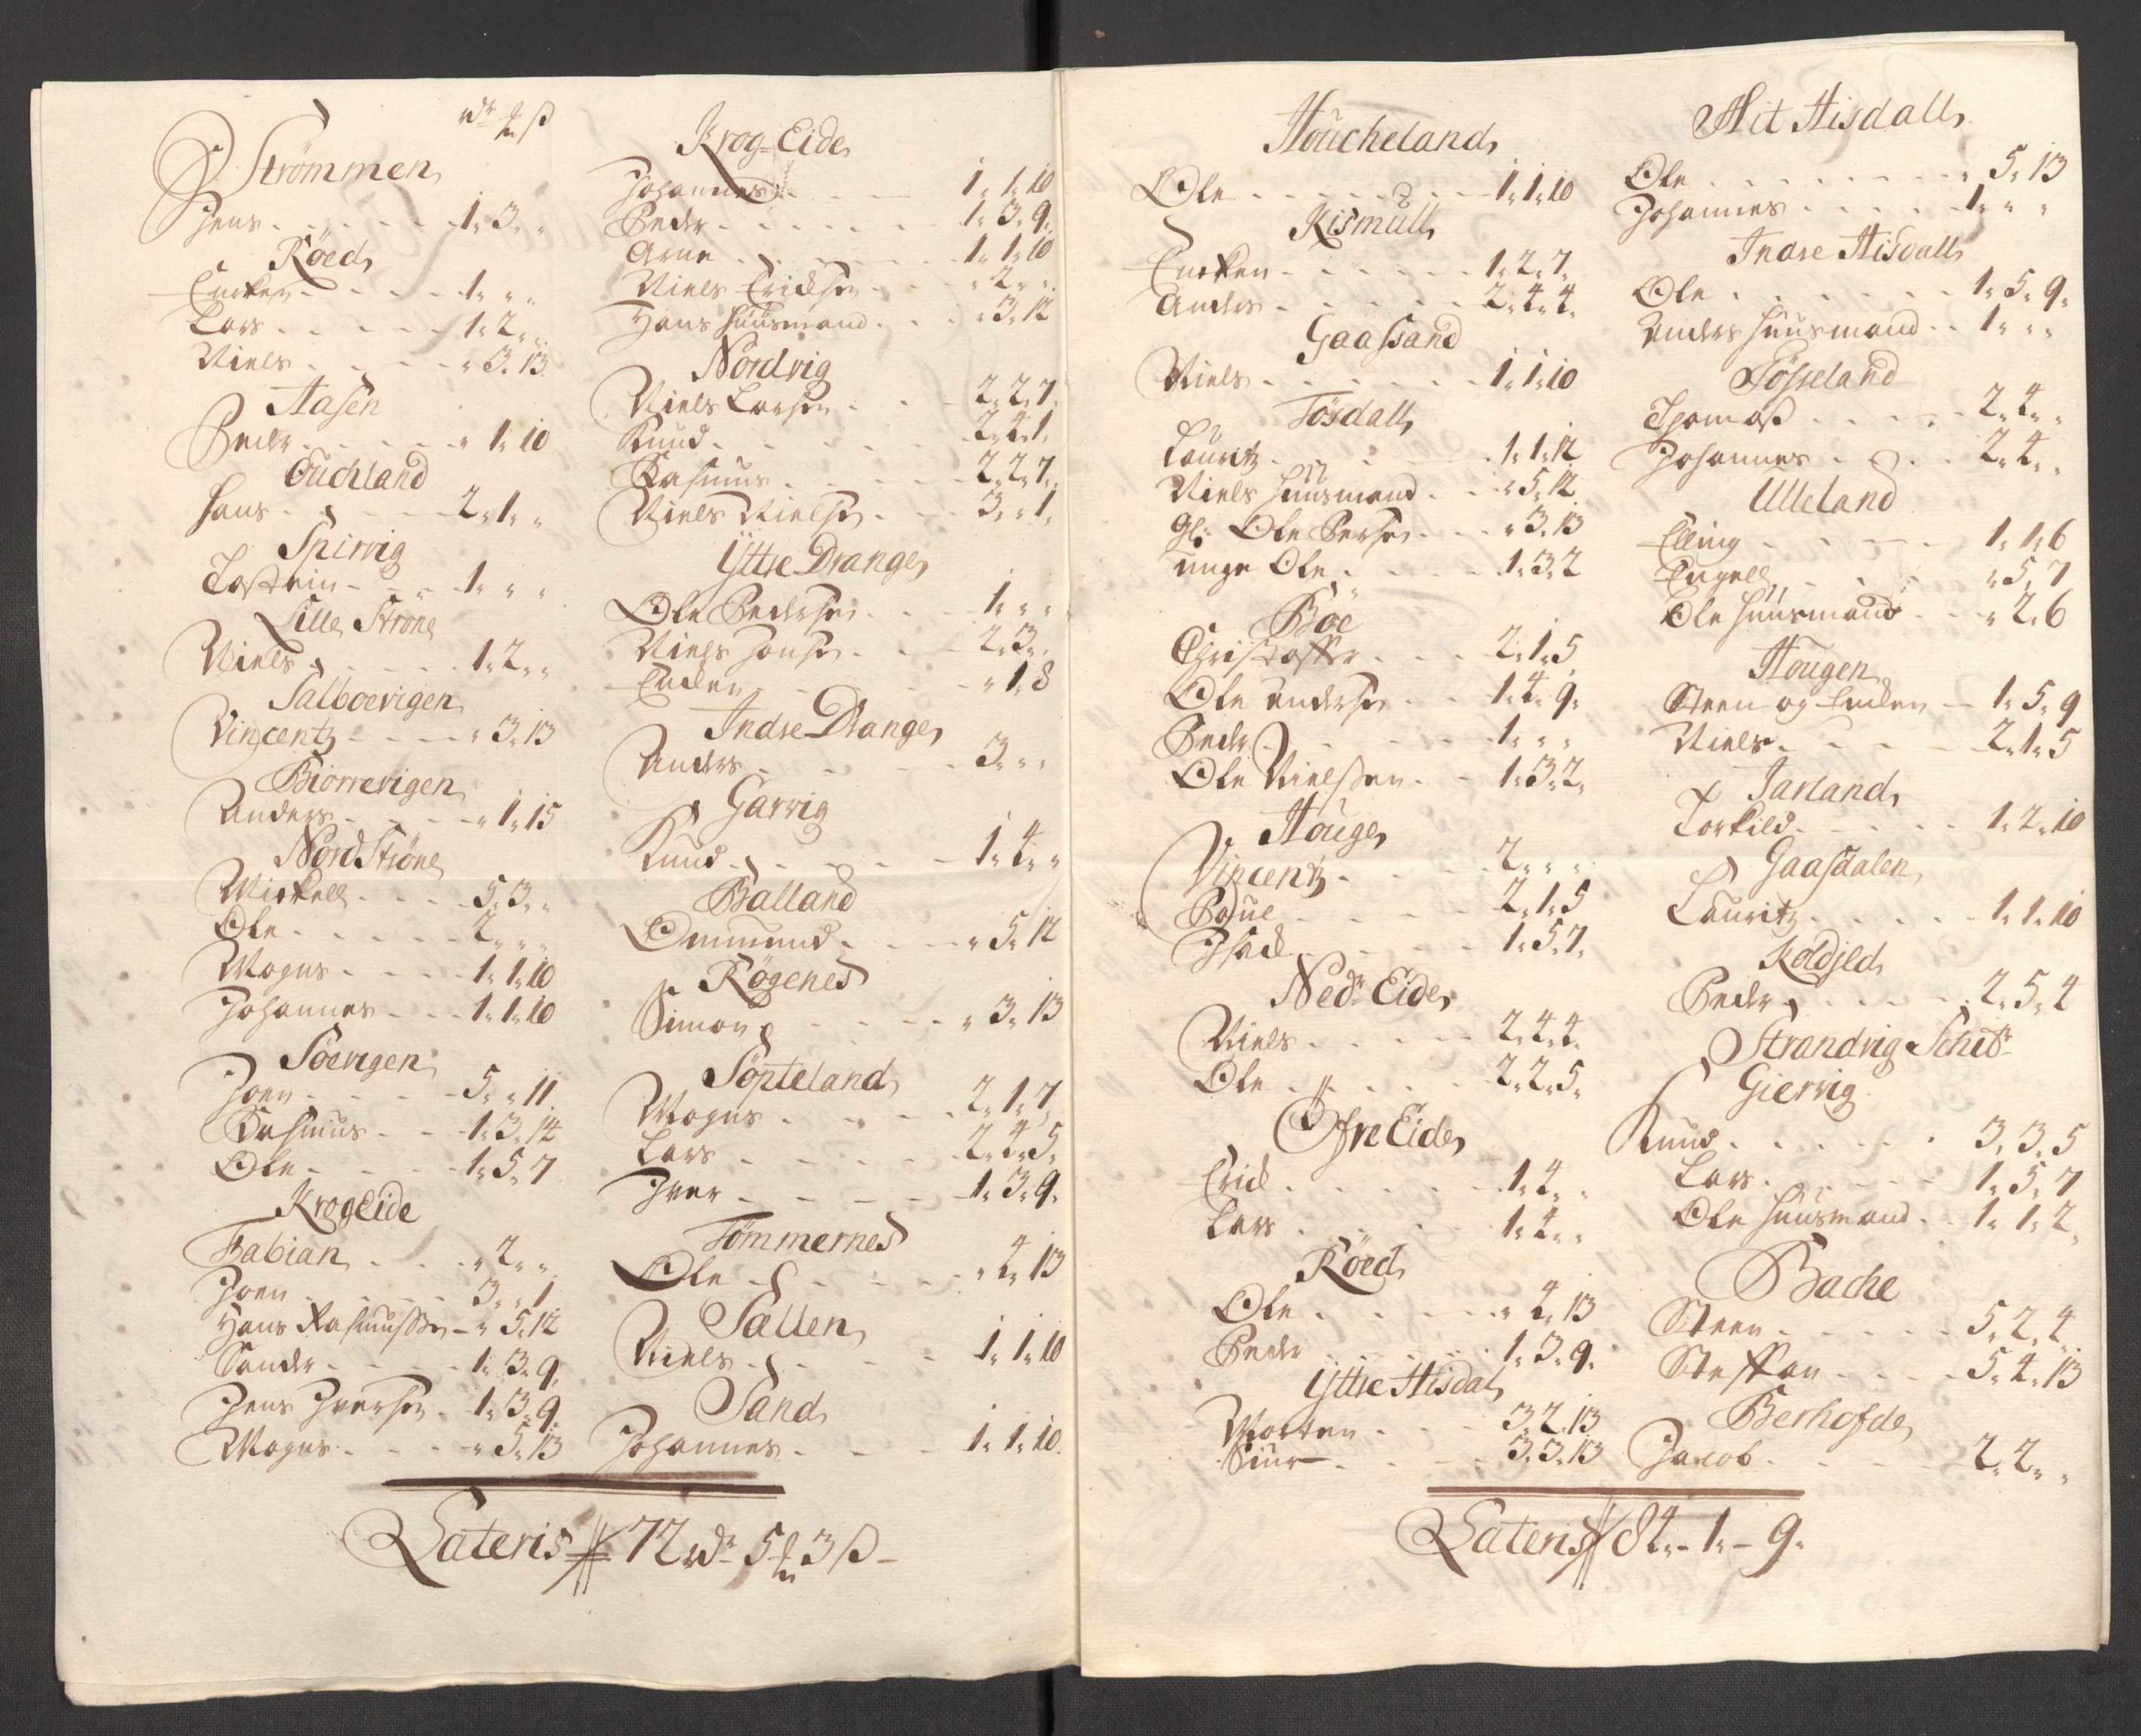 Rdr ƶ ß
Strömmen
Jens - - - - - 1„ 3„ „
Röed
Enchen - - - - 1„ „ „
Lars - - - - - 1„ 2„ „
Niels - - - - „ 3„ 13
Aasen
Peder - - - - „ 1„ 10
Ouchland
Hans - - - - 2„ 1„ „
Spirvig
Tostein - - - 1„ „ „
Lille Strone
Niels - - - - 1„ 2„ „
Salboevigen
Vincentz - - - „ 3„ 13
Biörnevigen
Anders - - - - „ 1„ 15
Nord Ströne
Michell - - - 5„ 3„ „
Ole - - - - - 2„ „ „
Mogns - - - - 1„ 1„ 10
Johannes - - - 1„ 1„ 10
Söevigen
Joen - - - - 5„ „ 11
Rasmus - - - 1„ 3„ 14
Ole - - - - 1„ 5„ 7
Krogeide
Fabian - - - „ 2„ „
Joen - - - - 3„ „ 1
Hans Rasmusßen - „ 5„ 12
Sander - - - - 1„ 3„ 9
Jens Iversen - 1„ 3„ 9
Mogns - - - - „ 5„ 13
Krog=Eide
Johannes - - - 1„ 1„ 10
Peder - - - - - 1„ 3„ 9
Arne - - - - - 1„ 1„ 10
Niels Erichsen - - „ 2„ „
Hans Huusmand - - „ 3„ 12
Nordvig
Niels Larsen - - 2„ 2„ 7
Knud - - - - - 2„ 4„ 1
Rasmus - - - - 2„ 2„ 7
Niels Nielsen - - 3„ „ 1
Yttre Drange
Ole Pedersen - - 1„ „ „
Niels Hansen - - 2„ 3„ „
Enchen - - - - „ 1„ 8
Indre Drange
Anders - - - - 3„ „ „
Garvig
Knud - - - - - 1„ 4„ „
Balland
Ommund - - - „ 5„ 12
Røgenes
Simon - - - - „ 3„ 13
Söpteland
Mogns - - - - 2„ 1„ 7
Lars - - - - - 2„ 4„ 5
Iver - - - - - 1„ 3„ 9
Tömmernes
Ole - - - - - „ 4„ 13
Sællen
Niels - - - - 1„ 1„ 10
Sand
Johannes - - - 1„ 1„ 10
Lateris 72 Rdr 5 ƶ 3 ß
Houcheland
Ole - - - - - 1„ 1„ 10
Kismull
Enchen - - - - 1„ 2„ 7
Anders - - - - 2„ 4„ 4
Gaassand
Niels - - - - - 1„ 1„ 10
Tösdall
Lauritz - - - - 1„ 1„ 12
Niels Huusmand - - „ 5„ 12
Gl: Ole Persen - - „ 3„ 13
unge Ole - - - - 1„ 3„ 2
Böe
Christoffer - - - 2„ 1„ 5
Ole Andersen - - 1„ 4„ 9
Peder - - - - - 1„ „ „
Ole Nielssen - - 1„ 3„ 2
Houge
Vincentz - - - - 2„ „ „
Poul - - - - - 2„ 1„ 5
Isach - - - - - 1„ 5„ 7
Nedr Eide
Niels - - - - - 2„ 4„ 4
Ole - - - - - 2„ 2„ 5
Ofre Eide
Erich - - - - - 1„ 4„ „
Lars - - - - - 1„ 4„ „
Röed
Ole - - - - - „ 4„ 13
Peder - - - - - 1„ 3„ 9
Yttre Hisdal
Morten - - - - 3„ 2„ 13
Siur - - - - - 3„ 3„ 13
Mit Hisdall
Ole - - - - - - „ 5„ 13
Johannes - - - - 1„ „ „
Indre Hisdall
Ole - - - - - - 1„ 5„ 9
Anders Huusmand - - 1„ „ „
Tösseland
Thomas - - - - 2„ 4„ „
Johannes - - - - 2„ 4„ „
Ulleland
Elling - - - - - 1„ 1„ 6
Engell - - - - „ 5„ 7
Ole Huusmand - - „ 2„ 6
Hougen
Steen og Enchen - 1„ 5„ 9
Niels - - - - - 2„ 1„ 5
Jarland
Torkild - - - - 1„ 2„ 10
Gaasdalen
Lauritz - - - - 1„ 1„ 10
Koldsed
Peder - - - - - 2„ 5„ 4
Strandvig Schibr
Giervig
Knud - - - - - 3„ 3„ 5
Lars - - - - - 1„ 5„ 7
Ole Huusmand - - 1„ 1„ 2
Bache
Steen - - - - - 5„ 2„ 4
Steffen - - - - 5„ 4„ 13
Berhofde
Jacob - - - - - 2„ 2„ „
Lateris 84„ - 1„ - 9„